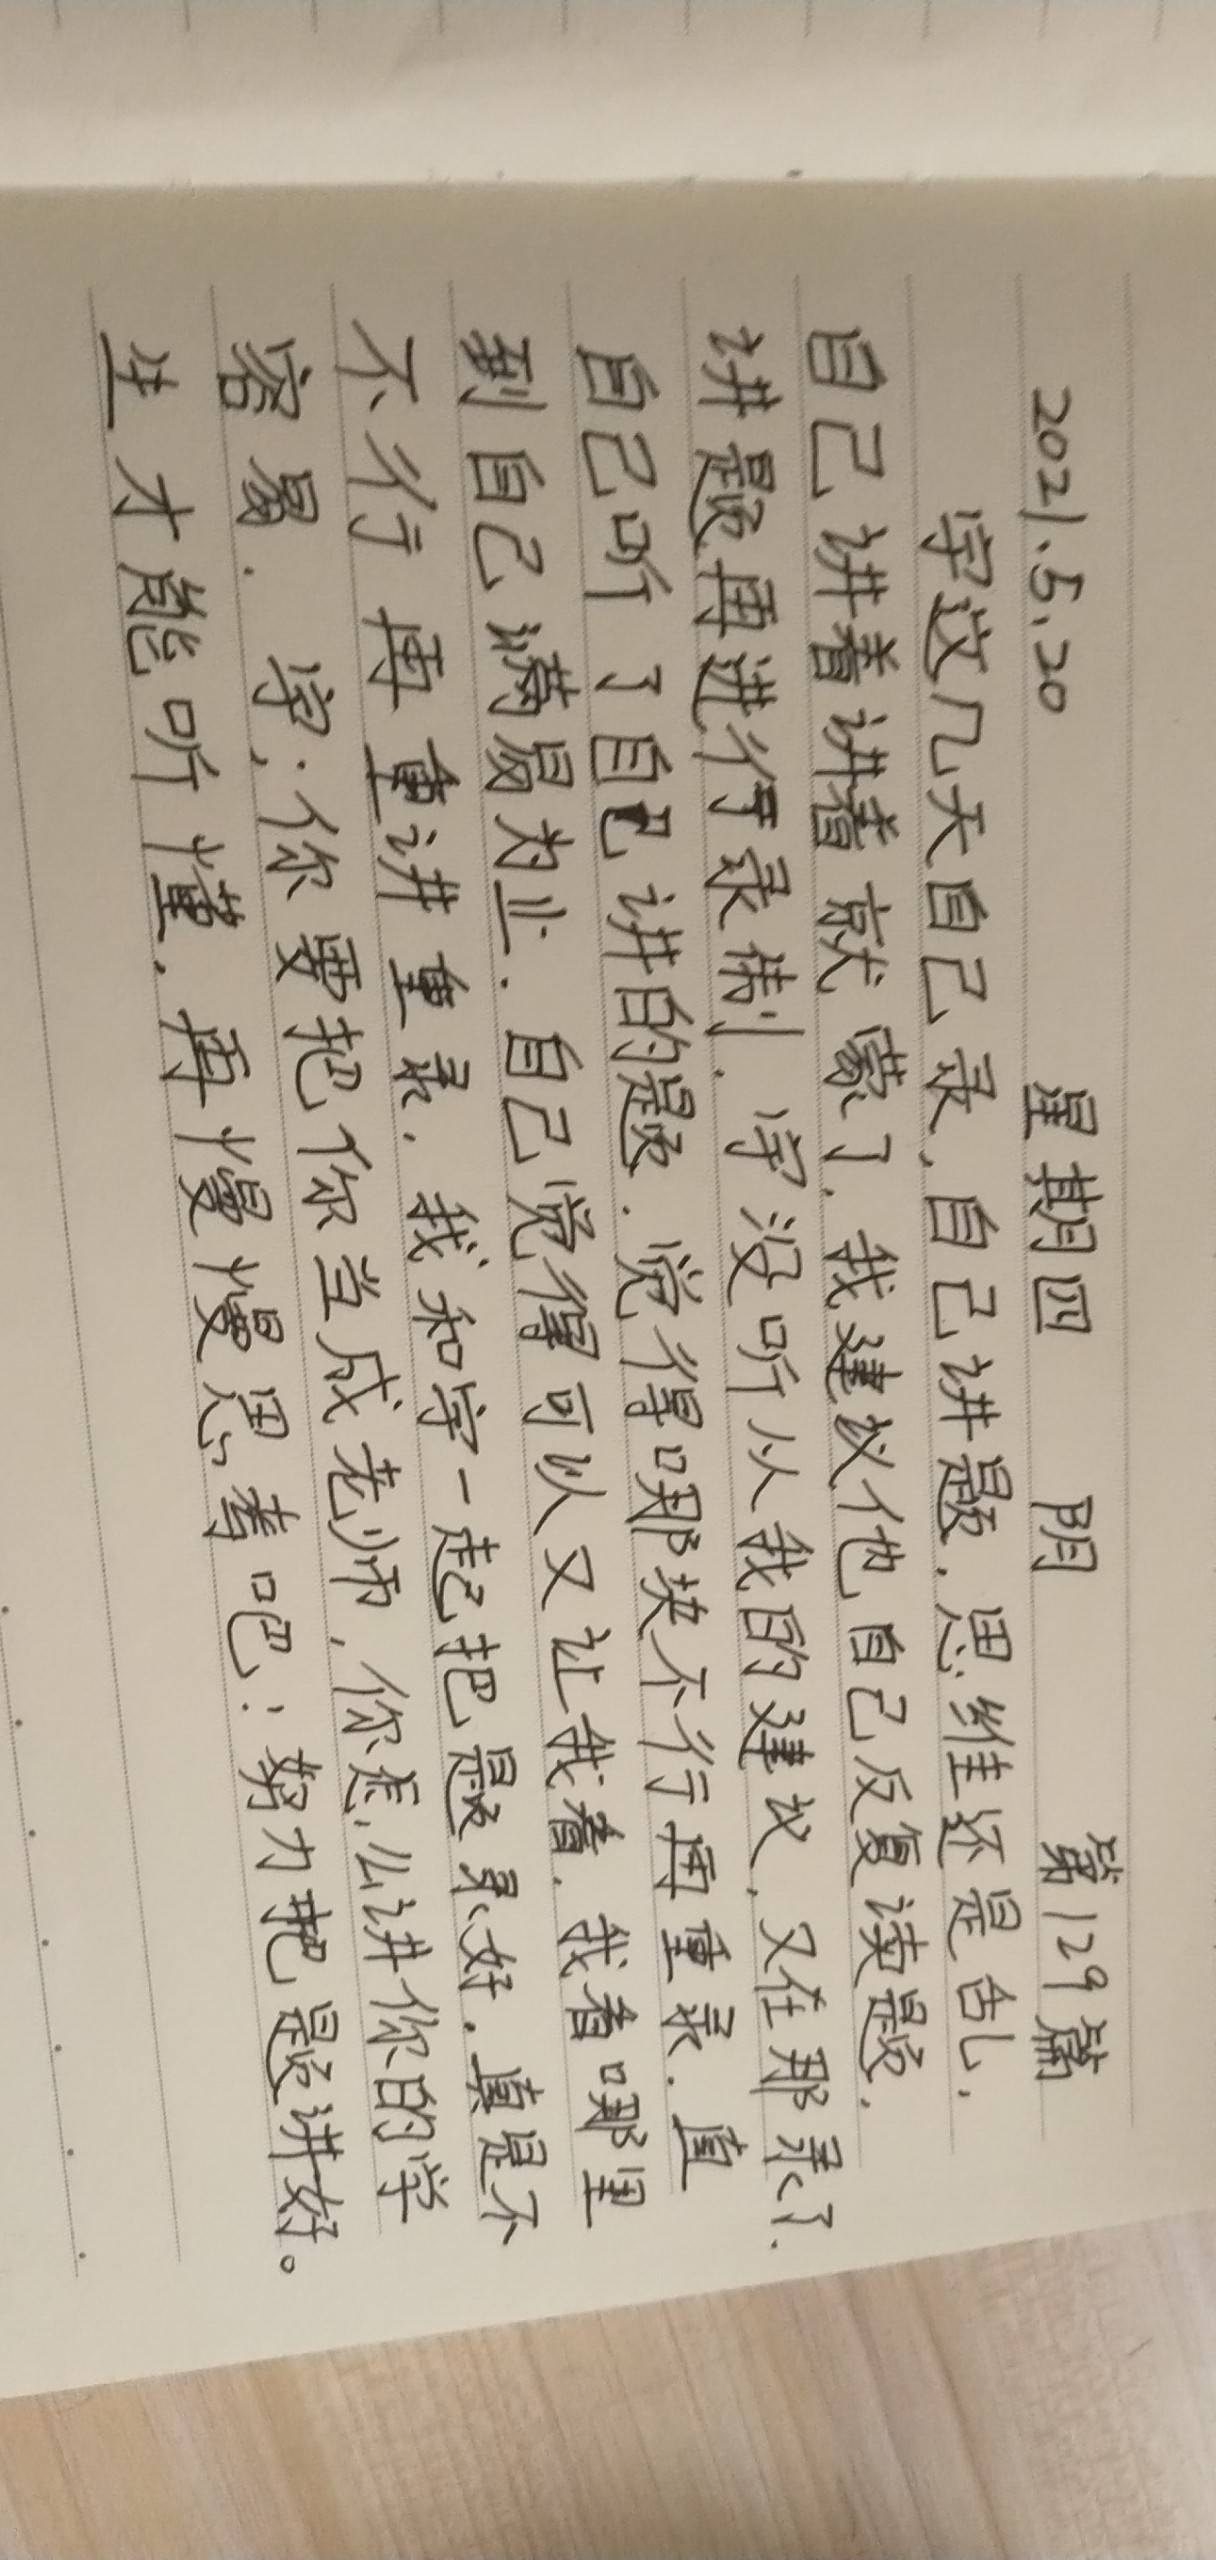 2021.5.20 星期四 阴 第129篇
宇这几天自己录.自己讲题.思维还是乱.
自己讲着讲着就蒙了.我建议他自己反复读题.
讲题再进行录制.宇没听从我的建议.又在那录了.
自己听了自己讲的题.觉得哪块不行再重录.直
到自己满意为止.自己觉得可以又让我看.我看哪里
不行再重讲重录.我和宇一起把题录好.真是不
容易.宇:你要把你当成老师,你怎么讲你的学
生才能听懂.再慢慢思考吧!努力把题讲好。